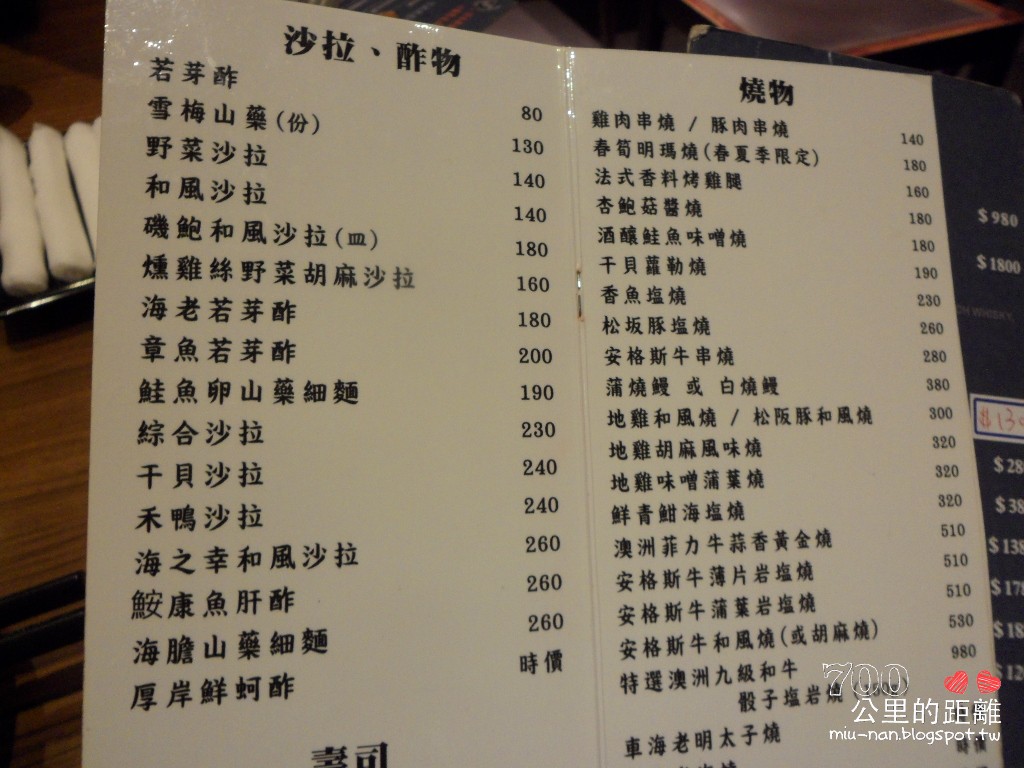 沙拉、酢物
若芽酢 80
雪梅山藥(份) 130
野菜沙拉 140
和風沙拉 140
磯鮑和風沙拉(皿) 180
燻雞絲野菜胡麻沙拉 160
海老若芽酢 180
章魚若芽酢 200
鮭魚卵山藥細麵 190
綜合沙拉 230
干貝沙拉 240
禾鴨沙拉 240
海之幸和風沙拉 260
鮟康魚肝酢 260
海膽山藥細麵 260
厚岸鮮蚵酢 時價
壽司
燒物
雞肉串燒 / 豚肉串燒 140
春筍明瑪燒(春夏季限定) 180
法式香料烤雞腿 160
杏鮑菇醬燒 180
酒釀鮭魚味噌燒 180
干貝蘿勒燒 190
香魚塩燒 230
松坂豚塩燒 260
安格斯牛串燒 280
蒲燒鰻 或 白燒鰻 380
地雞和風燒 / 松阪豚和風燒 300
地雞胡麻風味燒 320
地雞味噌蒲葉燒 320
鮮青魽海塩燒 320
澳洲菲力牛蒜香黃金燒 510
安格斯牛薄片岩塩燒 510
安格斯牛蒲葉岩塩燒 510
安格斯牛和風燒(或胡麻燒) 530
特選澳洲九級和牛 980
骰子塩岩燒
車海老明太子燒
時價
$980
$1800
WHISKY,
700
公里的距離
miu-nan.blogspot.tw